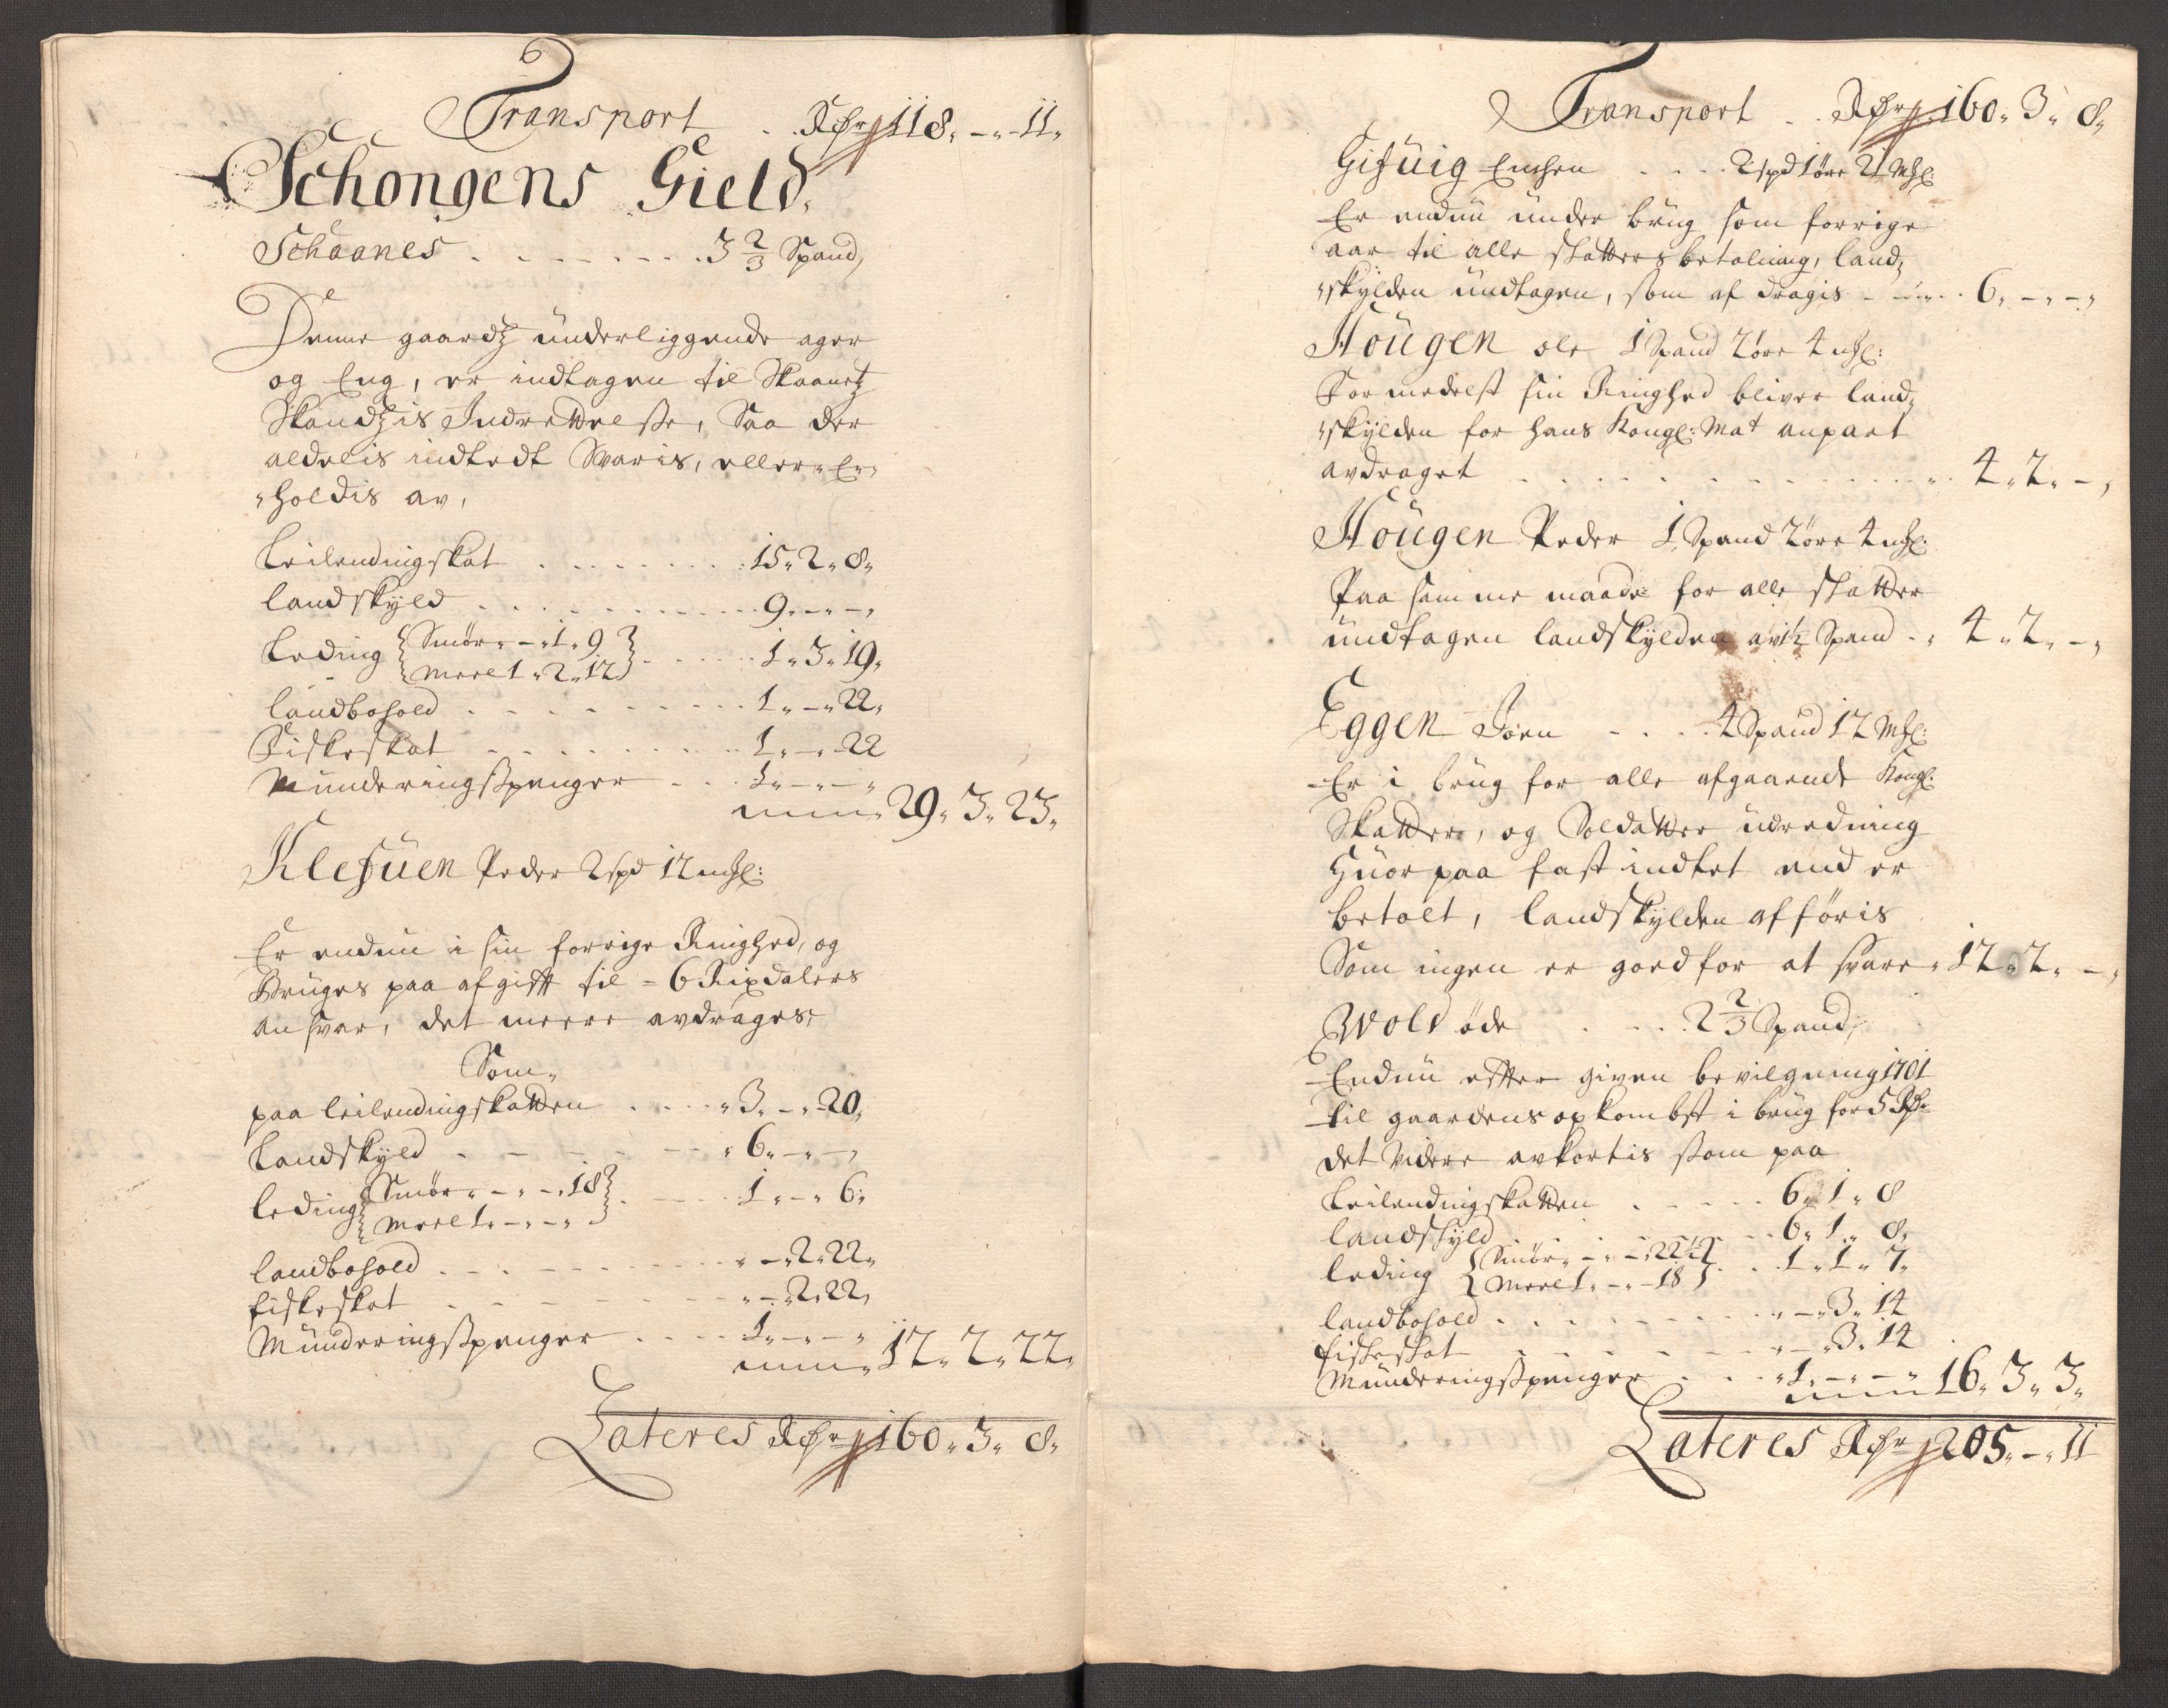 Transport . . Rdr 118„ -„ 11„
Schongens Gield,
Schaanes . . . . . . . . 3 2/3 Spand,
Denne gaardz underliggende ager
og Eng, er indtagen til Skaanetz
Skandzis Indrettelsse, Saa der
aldelis indtedt Svaris, eller Er„
„holdis av,
Leilendingskat . . . . . . . 15„ 2„ 8„
landskyld . . . . . . . . . 9„ -„ -„
Leding { Smør„ -„ 1„ 9 } . . . . . 1„ 3„ 19„
{ Meel 1„ 2„ 12 }
landbohold . . . . . . . . 1„ -„ 22„
Fiskeskat . . . . . . . . 1„ -„ 22
Munderingsspenger . . . 1„ -„ -„
29„ 3„ 23„
Klefuen Peder 2 spd 12 ml:
Er endnu i sin forrige Ringhed, og
Bruges paa afgifft til = 6 Rixdalers
ansvar, det meere avdrages,
Som„
paa leilendingskatten . . . . „ 3„ -„ 20„
Landskyld . . . . . . . . „ 6„ -„ -„
leding { Smør„ -„ -„ 18 } . . . . 1„ -„ 6„
{ Meel 1„ -„ -„ }
landbohold . . . . . . . . „ -„ 2„ 22„
fiskeskat . . . . . . . . „ -„ 2„ 22„
Munderingsspenger . . . . 1„ -„ -„
12„ 2„ 22„
Lateres Rdr 160„ 3„ 8„
Transport . . Rdr 160„ 3„ 8„
Gifuig Enchen . . . . 2 spd 1 øre 21 Ml:
Er endnu under brug som forrige
aar til alle skatters betalning, land„
„skylden undtagen, som af dragis . . . . 6„ -„ -„
Hougen ole 1 Spand 2 øre 4 ml:
Formedelst sin Ringhed bliver land„
„skylden for hans Kongl: Mat anpart
avdraget . . . . . . . . . . . . . 4„ 2„ -„
Hougen Peder 1 Spand 2 øre 4 ml:
Paa samme maade for alle skatter
undtagen landskylden av 1 1/2 Spand . „ 4„ 2„ -„
Eggen Joen . . . . 4 Spand 12 Ml:
Er i brug for alle afgaaende Kongl:
Skatter, og Soldatter udredning
Huorpaa fast indtet end er
betalt, landskylden afføris
Som ingen er goed for at svare„ 12„ 2„ -„
Wold øde . . . . 2 2/3 Spand,
Endnu effter given bevilgning 1701
til gaardens opkombst i brug for 5 Rdr
det videre avkortis som paa
Leilendingskatten . . . . . 6„ 1„ 8
landskyld . . . . . . . 6„ 1„ 8„
leding { Smør„ -„ -„ 22 1/2 } . . . 1„ 1„ 7„
{ Meel 1„ -„ 18 }
landbohold . . . . . . . . „ -„ 3„ 14
fiskeskat . . . . . . . „ -„ 3„ 14
Munderingsspenger . . . „ 1„ -„ -„
16„ 3„ 3„
Lateres Rdr 205„ -„ 11